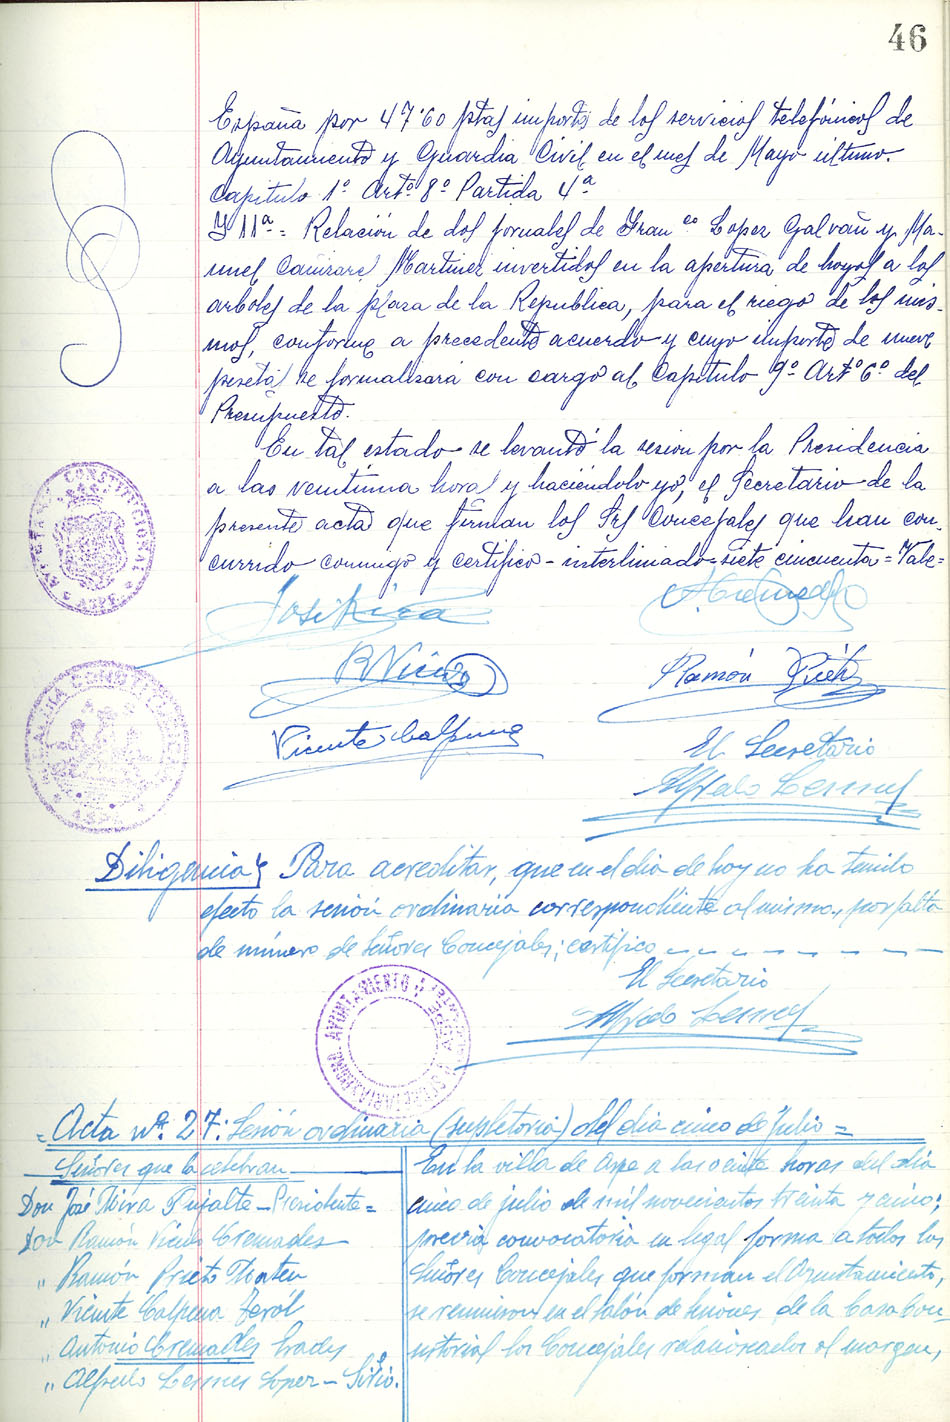 46
España por 47'60 ptas importe de los servicios telefónicos de
Ayuntamiento y Guardia Civil en el mes de Mayo último.
Capitulo 1º Artº 8º Partida 4ª
Y 11ª = Relación de dos jornales de Franco Lopez Galvañ y Ma-
nuel Martinez invertidos en la apertura de hoyos a los
arboles de la plaza de la Republica, para el riego de los mis-
mos, conforme a precedente acuerdo y cuyo importe de nueve
pesetas se formalizará con cargo al Capitulo 9º Artº 6º del
Presupuesto.
En tal estado se levantó la sesion por la Presidencia
a las veintiuna horas y haciéndolo yo, el Secretario de la
presente acta que firman los Srs Concejales que han con-
currido conmigo y certifico - interlineado = siete cincuenta = Vale =
José Mira
A. Cremades
R Vicedo
Ramón Prieto
Vicente Calpena
El Secretario
Alfredo
AYUNTAMIENTO CONSTITUCIONAL
ASPE
ALCALDIA CONSTITUCIONAL
ASPE
Diligencia Para acreditar, que en el dia de hoy no ha tenido
efecto la sesión ordinaria correspondiente al mismo, por falta
de número de Señores Concejales; certifico
El Secretario
Alfredo
AYUNTAMIENTO
ASPE
SECRETARIA
= Acta nº 27: Sesión ordinaria (supletoria) del dia cinco de Julio =
Señores que la celebran
Don José Mira Pujalte - Presidente =
Don Ramón Vicedo Cremades
" Ramón Prieto
" Vicente Calpena Teról
" Antonio Cremades
" Alfredo Lopez - Srio.
En la villa de Aspe a las veinte horas del dia
cinco de julio de mil novecientos treinta y cinco;
previa convocatoria en legal forma a todos los
Señores Concejales que forman el Ayuntamiento,
se reunieron en el salón de sesiones de la Casa Con-
sistorial los Concejales relacionados al margen,